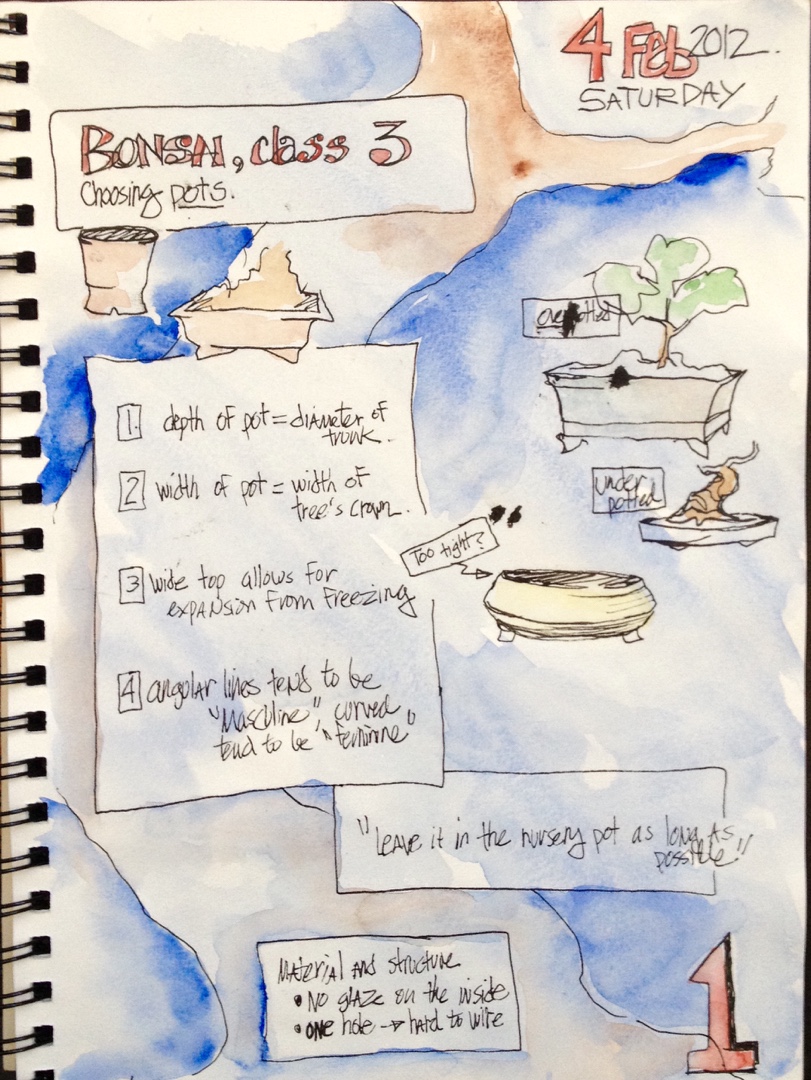 4 Feb 2012.
SATURDAY
BONSAI, class 3
Choosing pots.
overpotted
1. depth of pot = diameter of
trunk.
2 width of pot = width of
tree's crown.
under
potted
Too tight?
3 wide top allows for
expansion from freezing
4 angular lines tend to be
"masculine", curved
tend to be "feminine"
"Leave it in the nursery pot as long as
possible."
Material and structure
• No glaze on the inside
• one hole → hard to wire
1